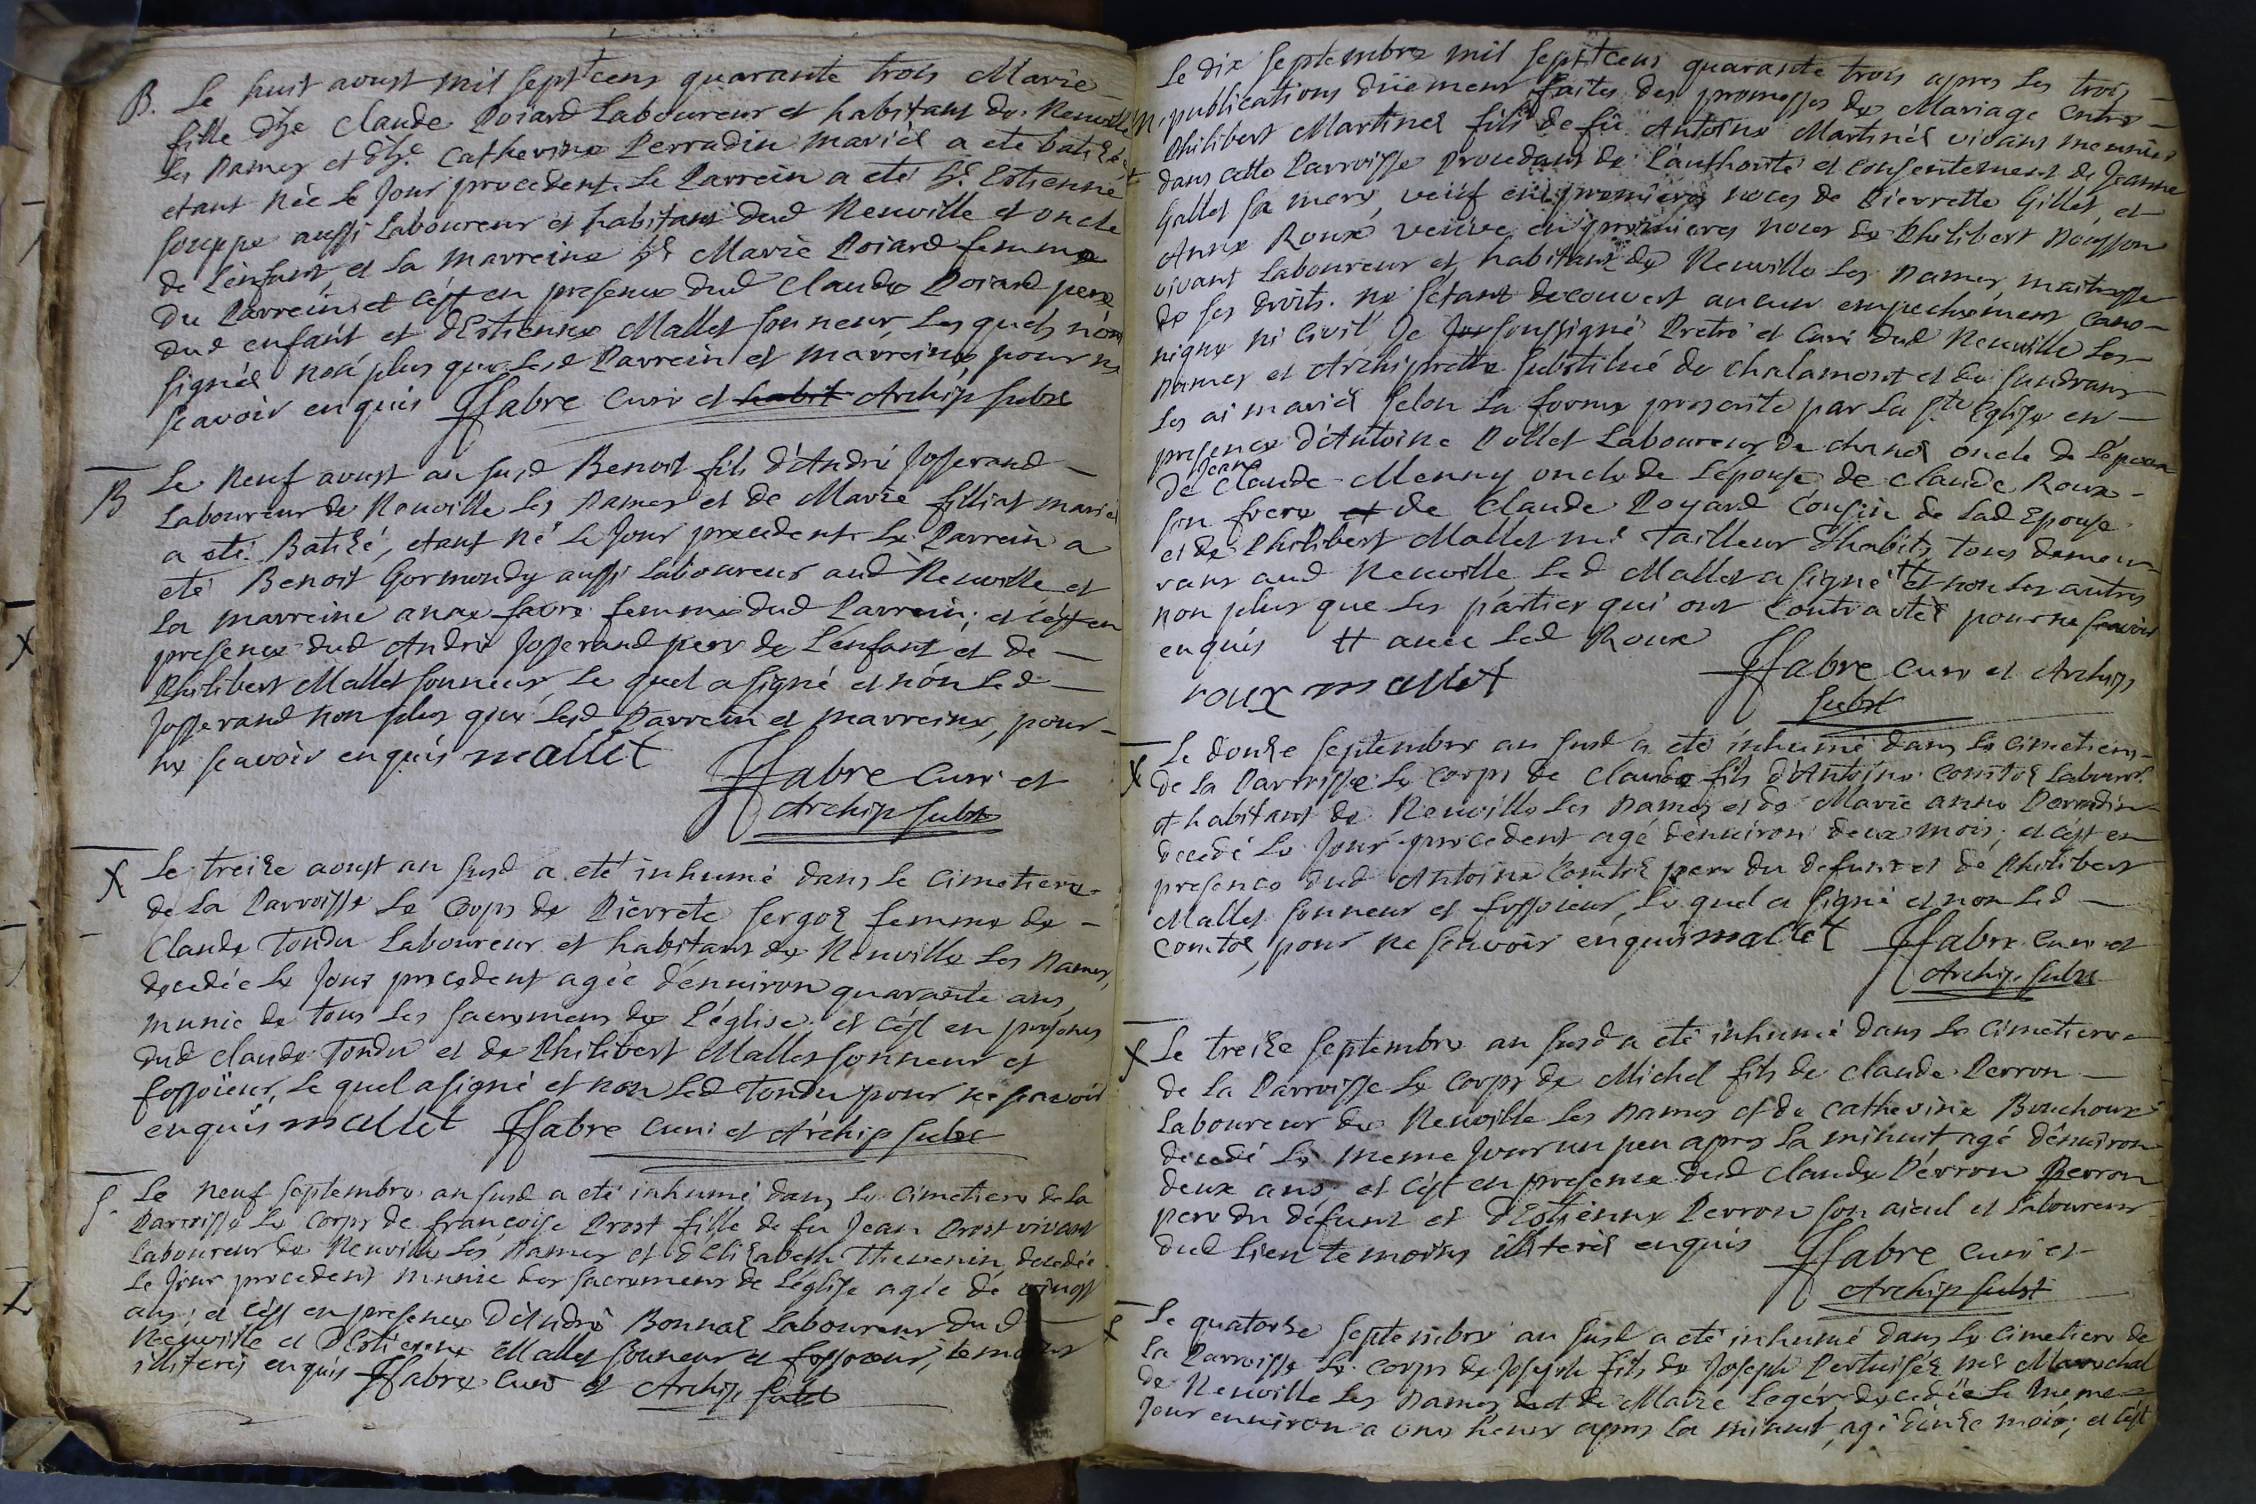 B. Le huit aoust mil sept cens quarante trois Marie
fille d'hte Claude Poiard Laboureur et habitant de Neuville
les Dames et d'hte Catherine Perradin mariés a eté batisée
etant Née le Jour precedent. Le Parrein a eté hte Estienne
aussi Laboureur et habitant dud Neuville et oncle
de L'enfant, et la marreine hte Marie Poiard femme
du Parrein et c'est en presence dud Claude Poiard pere
dud enfant et d'Estienne Mallet sonneur, Les quels n'ont
signés non plus que Lesd Parrein et marreine, pour ne
scavoir enquis JFabre Curé et habit Archip subst
B Le Neuf aoust an susd Benoit fils d'André Josserand
Laboureur de Neuville les Dames et de Marie filliat mariés
a eté Batisé, etant Né le Jour precedent. Le Parrein a
eté Benoit Gormondy aussi Laboureur aud Neuville et
la marreine anne favre femme dud Parrein; et c'est en
presence dud André Josserand pere de L'enfant et de
Philibert Mallet sonneur, Le quel a signé et non Led
Josserand non plus que Lesd Parrein et marreine, pour
ne scavoir enquis mallet
JFabre Curé et
Archip subst
X Le treize aoust an susd a eté inhumé dans le Cimetiere
de la Parroisse Le Corps de Pierrete sergos femme de
Claude Tondu Laboureur et habitant de Neuville les Dames,
decedée le Jour precedent agée d'environ quarante ans,
munie de tous les sacremens de l'église; et c'est en presence
dud Claude Tondu et de Philibert Mallet sonneur et
fossoieur, Le quel a signé et non Led Tondu pour ne scavoir
enquis mallet JFabre Curé et Archip subst
S. Le Neuf septembre an susd a eté inhumé dans le Cimetiere de la
Parroisse Le Corps de françoise Prost fille de feu Jean Prost vivant
Laboureur de Neuville les Dames et d'Elizabeth Thevenin, decedée
le Jour precedent munie des sacremens de l'église agée de vingt
ans; et c'est en presence d'André Bonnas Laboureur dud
Neuville et d'Estienne Mallet sonneur et fossoieur, temoins
illiterés enquis JFabre Curé et Archip subst
Le dix septembre mil sept cens quarante trois apres les trois
M. publications düement faites des promesses de Mariage entre
Philibert Martines fils de fû Antoine Martinés vivant meunier
dans cette Parroisse procedant de l'authorité et consentement de Jeanne
Gallet sa mere, veuf en premieres noces de Pierrette Gillet, et
Anne Roux veuve en premieres noces de Philibert
vivant Laboureur et habitant de Neuville les Dames, maitresse
de ses droits. ne s'étant decouvert aucun empechement cano-
nique ni civil, Je soussigné Pretre et Curé dud Neuville les
Dames et Archipretre substitué de Chalamont et de sandrans
Les ai mariés selon la forme prescrite par la ste Eglise en
presence d'Antoine Pollet Laboureur de oncle de l'époux
Jean
de Claude Menny oncle de L'épouse de Claude Roux
son frere et de Claude Poyard Cousin de lad Epouse
et de Philibert Mallet me tailleur d'habits, tous demeu-
rans aud Neuville, Led Mallet a signé # et non les autres
non plus que les parties qui ont contracté pour ne scavoir
enquis # avec Led Roux
roux mallet
JFabre Curé et Archip
subst
X Le douze septembre an susd a eté inhumé dans le cimetiere
de la Parroisse Le Corps de Claude fils d'Antoine Comtos Labour.
et habitant de Neuville les Dames et de Marie anne Perradin
decedé le Jour precedent agé d'environ deux mois; et c'est en
presence dud Antoine Comtos pere du defunt et de Philibert
Mallet sonneur et fossoieur, Le quel a signé et non Led
Comtos, pour ne scavoir enquis mallet JFabre Curé et
Archip. subst
X Le treize septembre an susd a eté inhumé dans le Cimetiere
de la Parroisse Le Corps de Michel fils de Claude Perron
Laboureur de Neuville les Dames et de Catherine Bouchoux
decedé le meme Jour un peu apres la minuit agé d'environ
deux ans et c'est en presence dud Claude Perron Perron
pere du defunt et d'Estienne Perron son aieul et Laboureur
dud Lieu temoins illiterés enquis JFabre Curé et
Archip subst
X Le quatorze septembre an susd a eté inhumé dans le Cimetiere de
la Parroisse Le Corps de Joseph fils de Joseph Pertuisés me Marechal
de Neuville les Dames et de Marie Leger decedé le meme
Jour environ a une heure apres la minuit, agé d'onze mois; et c'est